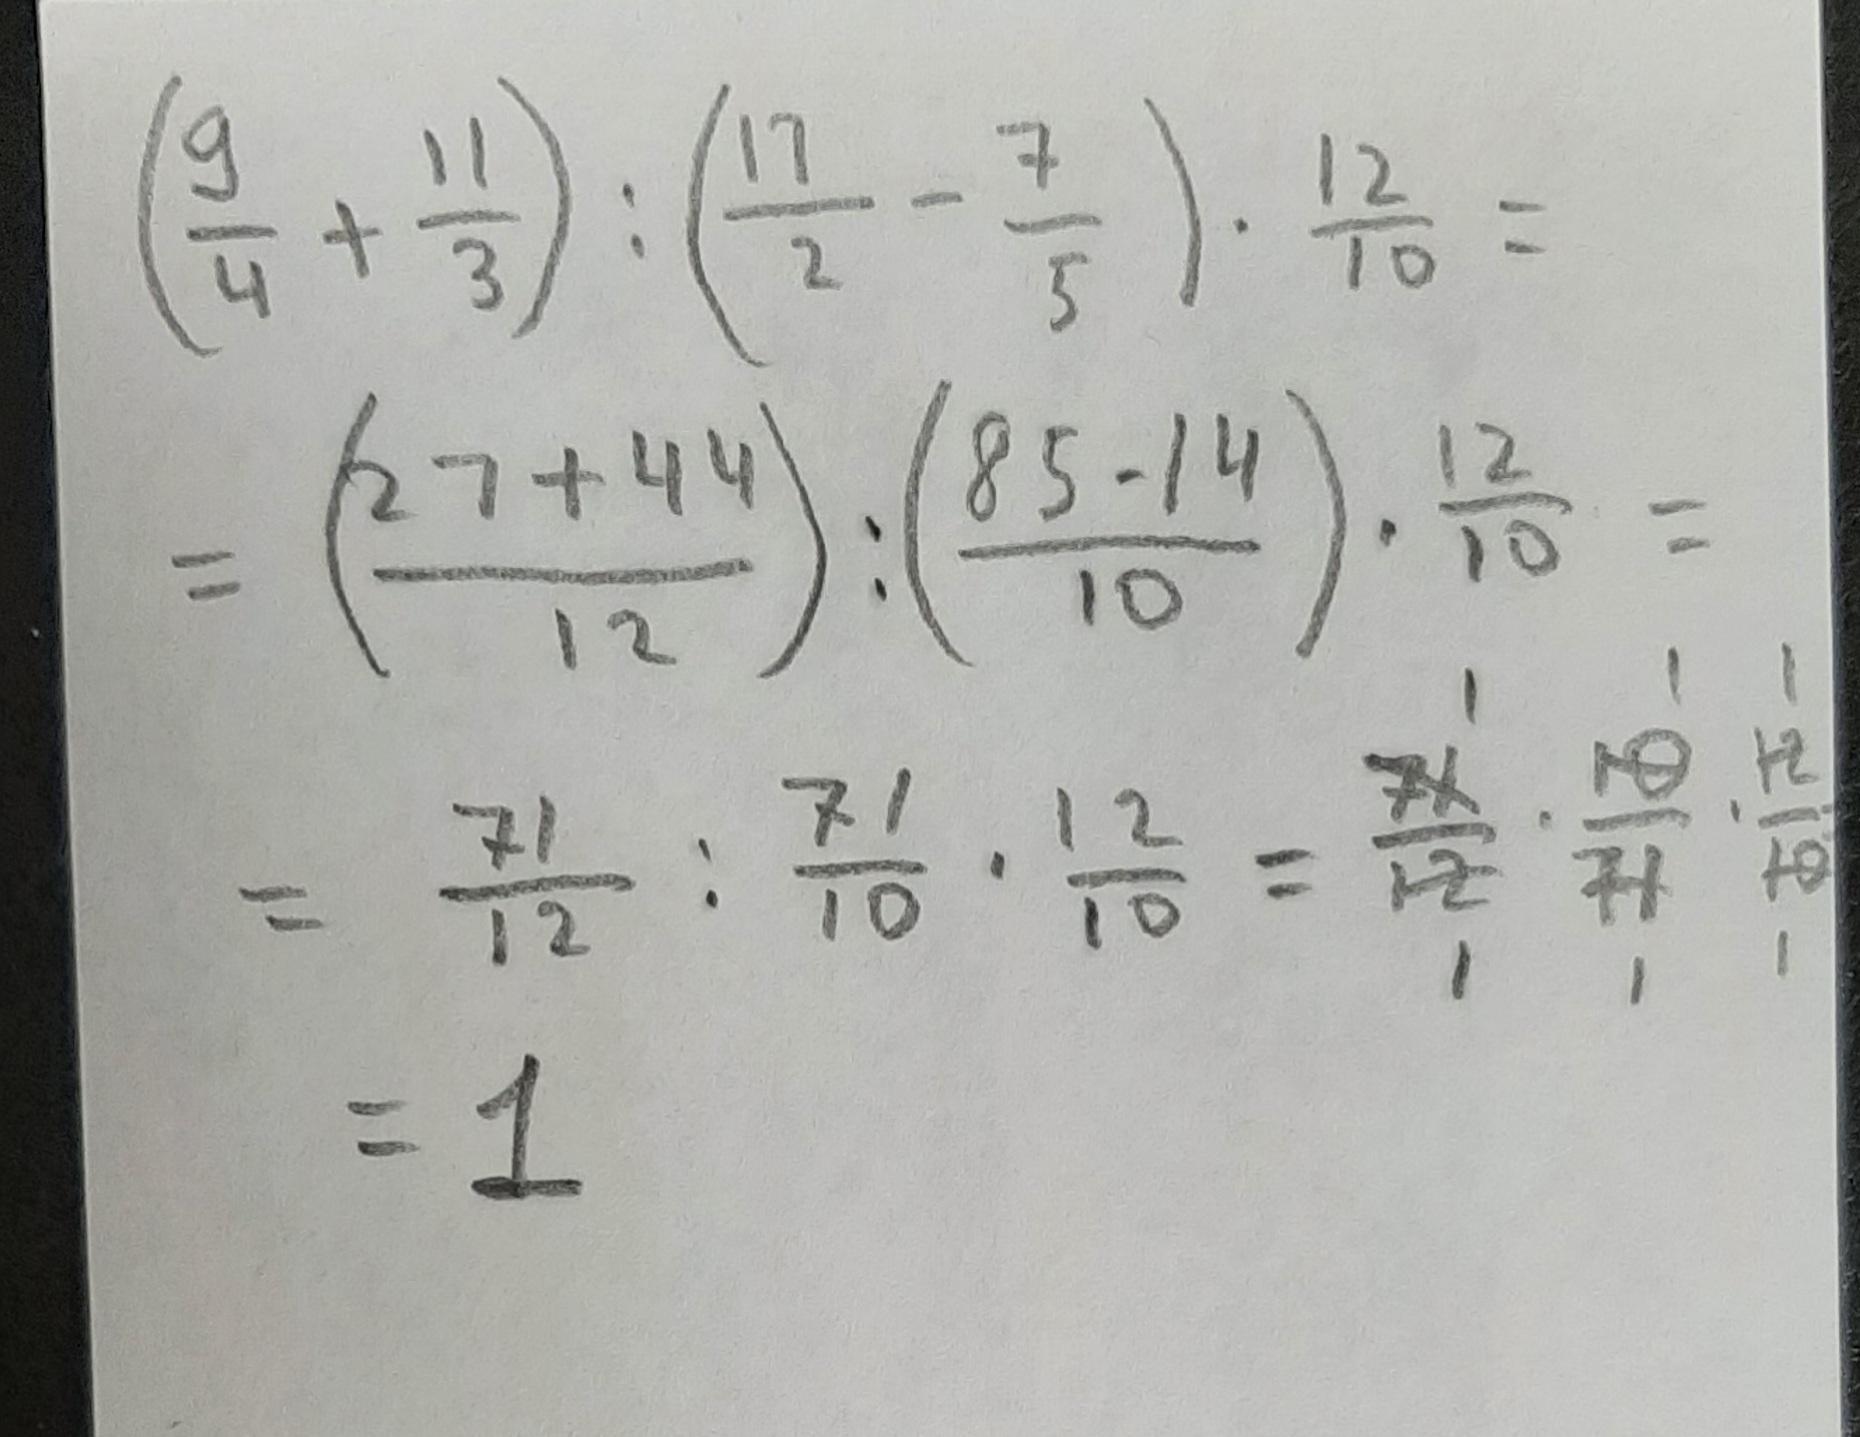 (9/4 + 11/3) : (17/2 - 7/5) · 12/10 =
= (27+44/12) : (85-14/10) · 12/10 =
= 71/12 : 71/10 · 12/10 = 71/12 · 10/71 · 12/10
1 1 1
1 1 1
= 1